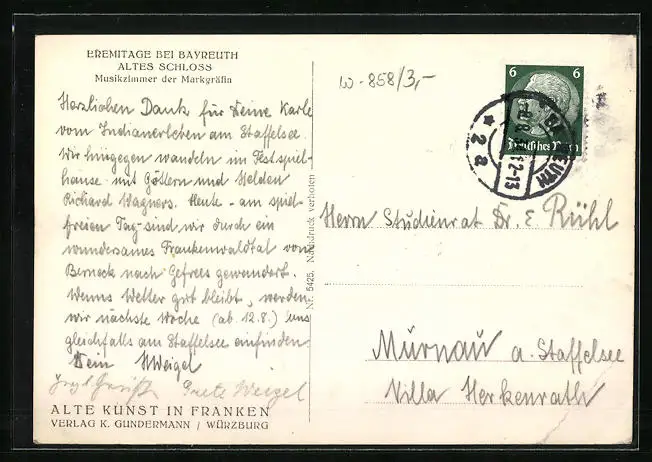 EREMITAGE BEI BAYREUTH
ALTES SCHLOSS
Musikzimmer der Markgräfin
Herzlichen Dank für Deine Karte
vom Indianerleben am Staffelsee.
Wir hingegen wandeln im Festspiel-
hause mit Göttern und Helden
Richard Wagners. Heute - am spiel-
freien Tag - sind wir durch ein
wundersames Frankenwaldtal von
Berneck nach Gefrees gewandert.
Wenns Wetter gut bleibt, werden
wir nächste Woche (ab 12.8.) uns
gleichfalls am Staffelsee einfinden.
Dein HWeigel
Grete Weigel
ALTE KUNST IN FRANKEN
VERLAG K. GUNDERMANN / WÜRZBURG
Nr. 5425. Nachdruck verboten
W-858/3,-
6 6
Deutsches Reich
BAYREUTH
12-13
* 2 a
Herrn Studienrat Dr. E. Rühl
Murnau a. Staffelsee
Villa Herkenrath